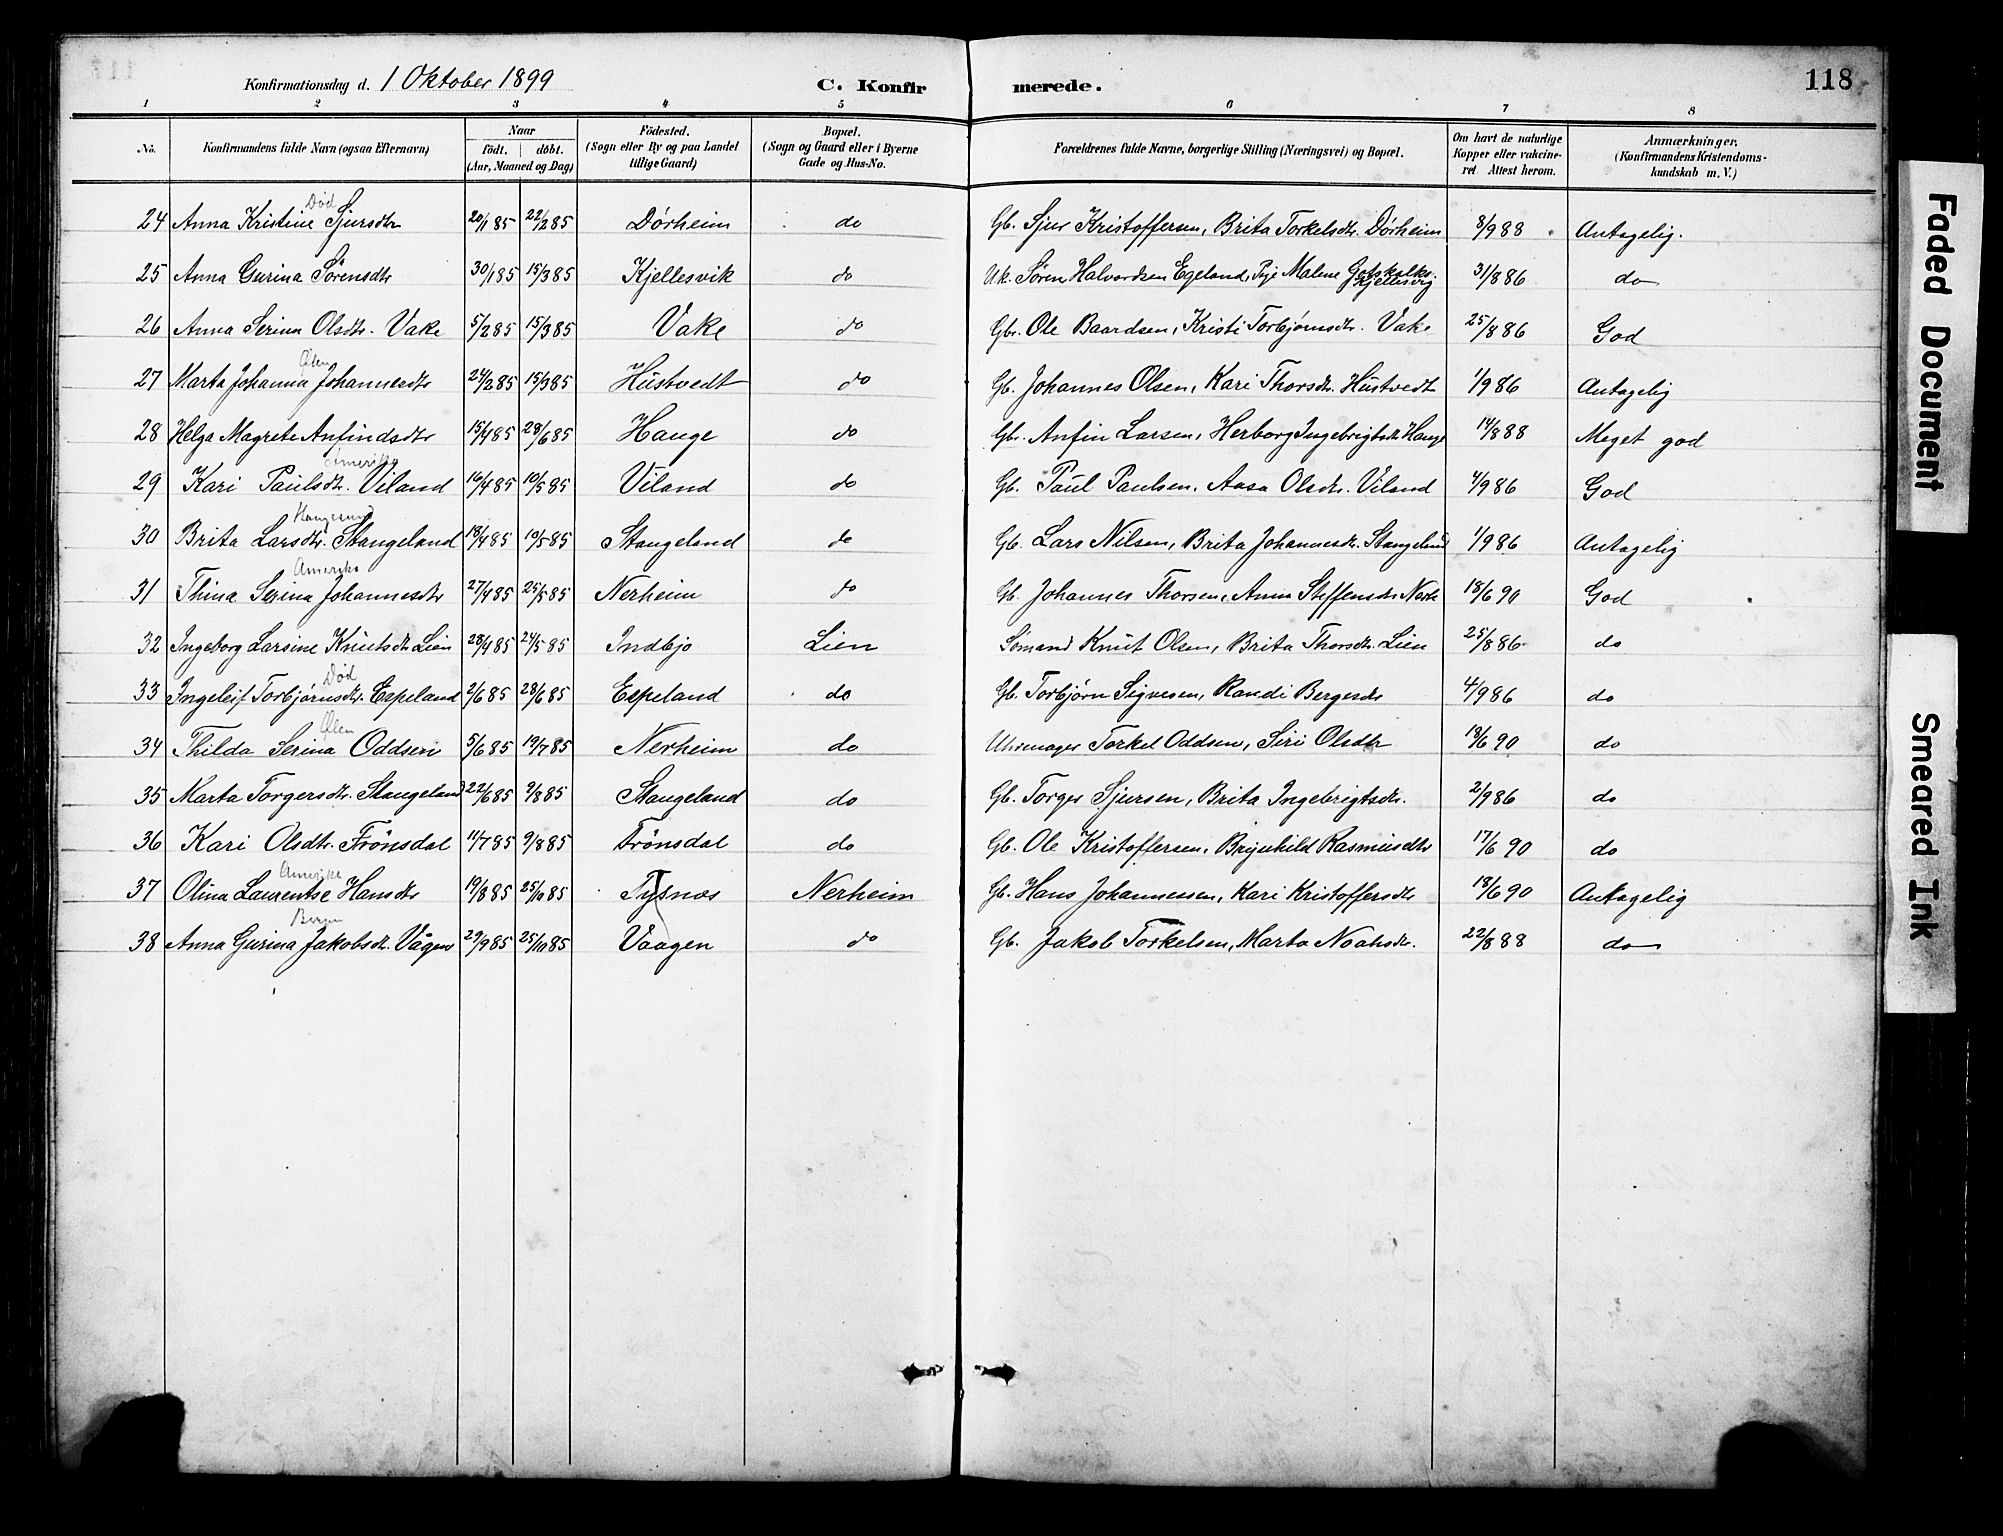 Konfirmationsdag d. 1 Oktober 1899 C. Konfirmerede. 118
1 2 3 4 5 6 7 8
No. Konfirmandens fulde Navn (ogsaa Efternavn) Naar født. døbt. (Aar, Maaned og Dag) Fødested. (Sogn eller By og paa Landet tillige Gaard) Bopæl. (Sogn og Gaard eller i Byerne Gade og Hus-No. Forældrenes fulde Navne, borgerlige Stilling (Næringsvei) og Bopæl. Om havt de naturlige Kopper eller vakcineret. Attest herom. Anmærkninger. (Konfirmandens Kristendomskundskab m. V.)
Død
24 Anna Kristine Sjursdtr 20/1 85 22/2 85 Dørheim do Gb. Sjur Kristoffersen, Brita Torkelsdtr. Dørheim 8/9 88 Antagelig.
25 Anna Gurina Sørensdtr 30/1 85 15/3 85 Kjellesvik do Uk. Søren Halvordsen Egeland, Pige Malene Gotskalks. Kjellesvig 31/8 86 do
26 Anna Serina Olsdtr. Vake 5/2 85 15/3 85 Vake do Gbr. Ole Baardsen, Kristi Torbjørnsdtr. Vake 25/8 86 God
Ølen
27 Marta Johanna Johannesdtr 24/2 85 15/3 85 Hustvedt do Gb. Johannes Olsen, Kari Thorsdtr. Hustvedt 1/9 86 Antagelig
28 Helga Magrete Anfindsdtr 15/4 85 28/6 85 Hauge do Gbr. Anfin Larsen, Herborg Ingebrigtsdtr Hauge 14/8 88 Meget god
Amerika
29 Kari Paulsdtr. Viland 16/4 85 10/5 85 Viland do Gb. Paul Paulsen, Aasa Olsdtr. Viland 4/9 86 God
Haugesund
30 Brita Larsdtr. Stangeland 18/4 85 10/5 85 Stangeland do Gb. Lars Nilsen, Brita Johannesdtr. Stangeland 1/9 86 Antagelig
Amerika
31 Thina Serina Johannesdtr 27/4 85 25/5 85 Nerheim do Gb. Johannes Thorsen, Anna Steffensdtr Nerh 18/6 90 God
32 Ingeborg Larsine Knutsdtr Lien 28/4 85 24/5 85 Indbjo Lien Sømand Knut Olsen, Brita Thorsdtr. Lien 25/8 86 do
Død
33 Ingeleif Torbjørnsdtr. Espeland 2/6 85 28/6 85 Espeland do Gb. Torbjørn Sigvesen, Randi Bergesdtr 4/9 86 do
Ølen
34 Thilda Serina Oddsen 5/6 85 19/7 85 Nerheim do Uhrmager Torkel Oddsen, Siri Olsdtr 18/6 90 do
35 Marta Torgersdtr. Stangeland 22/6 85 9/8 85 Stangeland do Gb. Torger Sjursen, Brita Ingebrigtsdtr. 2/9 86 do
36 Kari Olsdtr. Frönsdal 11/7 85 9/8 85 Frönsdal do Gb. Ole Kristoffersen, Brynhild Rasmusdtr 17/6 90 do
Amerika
37 Olina Laurentse Hansdtr 19/8 85 25/10 85 Tysnæs Nerheim Gb. Hans Johannesen, Kari Kristoffersdtr 18/6 90 Antagelig
Bergen
38 Anna Gurina Jakobsdt. Vågen 29/9 85 25/10 85 Vaagen do Gb. Jakob Torkelsen, Marta Noahsdtr. 22/8 88 do
Faded Document
Smeared Ink